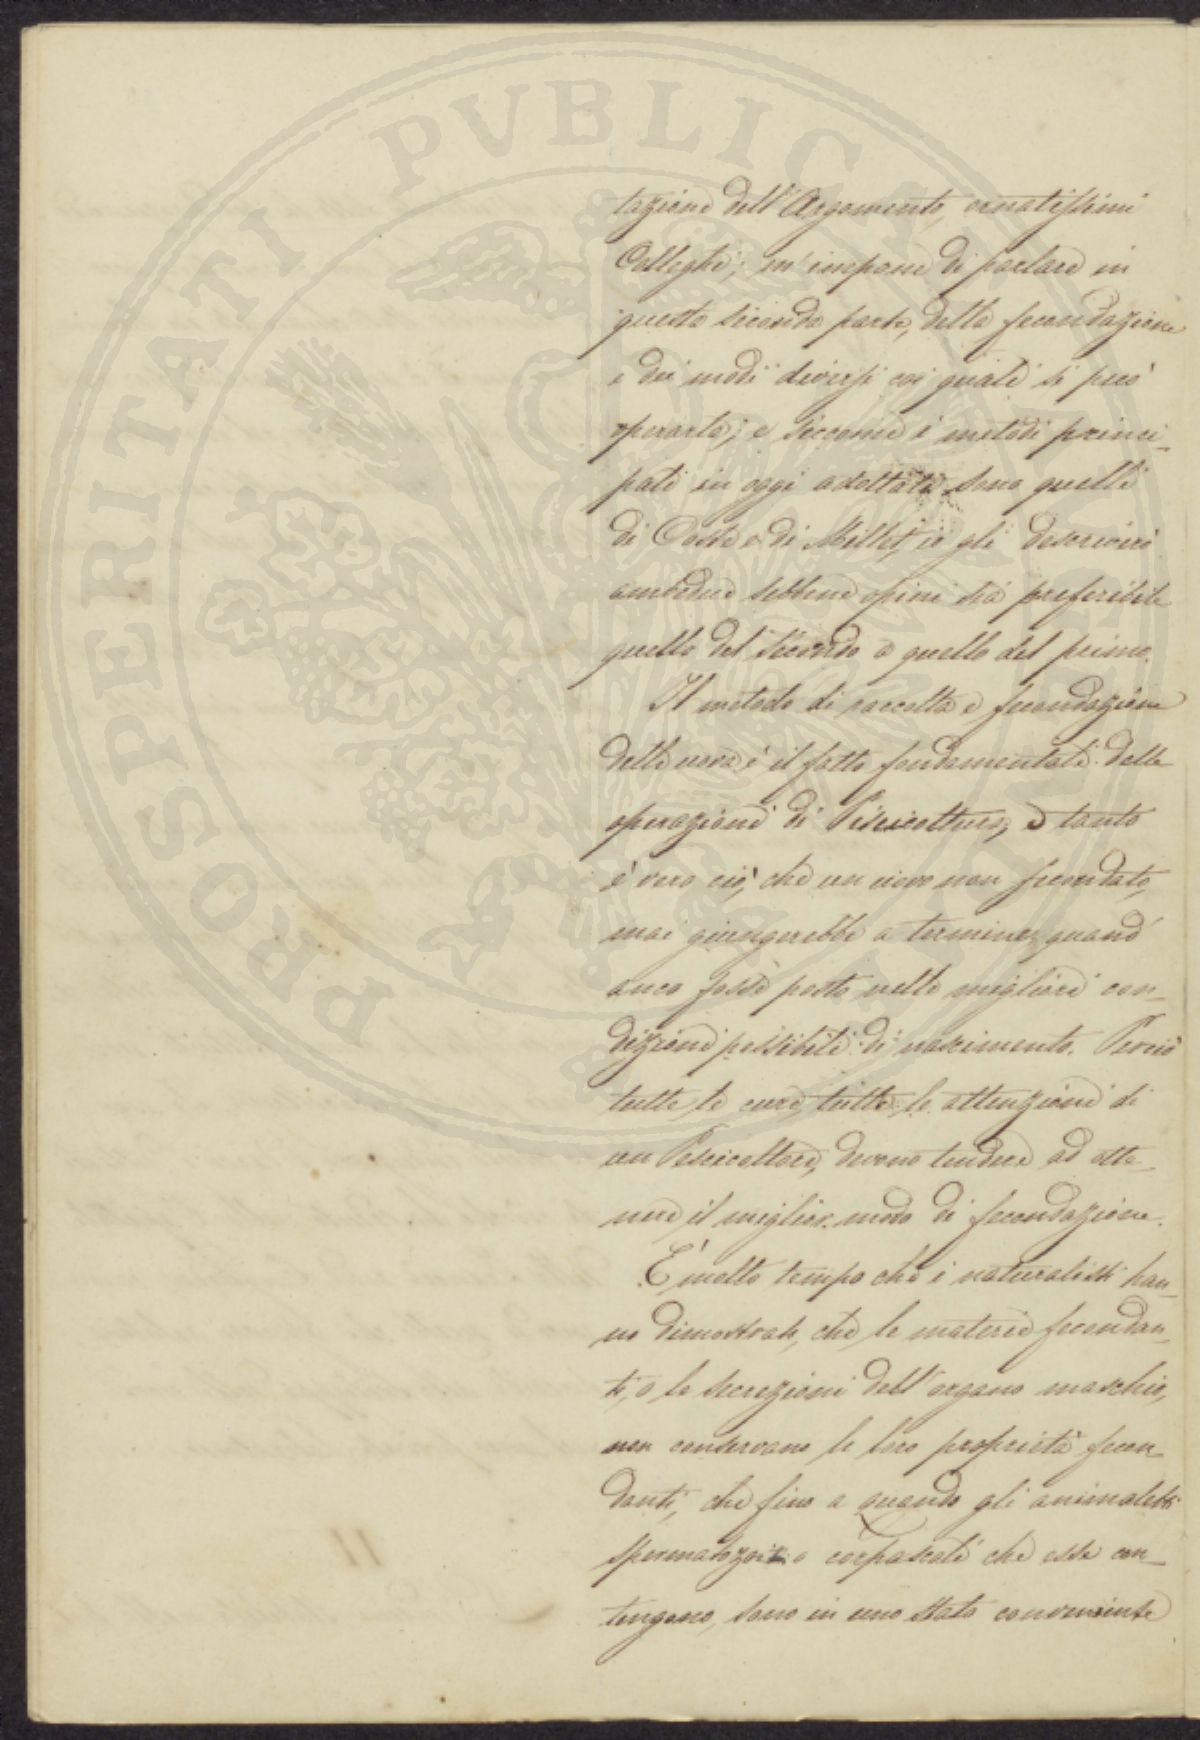 PROSPERITATI PUBLICAE
tazione dell'Argomento, ornatissimi
Colleghi, m'impone di parlare in
questa seconda parte, della fecondazione
e dei modi diversi coi quali si può
operarla; e siccome i metodi princi-
pali in oggi adottati sono quelli
di Coste e di Millet, io gli descriverò
ambedue sebbene opini sia preferibile
quello del secondo a quello del primo.
Il metodo di raccolta e fecondazione
delle uova è il fatto fondamentale delle
operazioni di Piscicoltura, e tanto
è vero ciò, che un uovo non fecondato,
mai giungerebbe a termine, quand'
anco fosse posto nelle migliori con-
dizioni possibili di nascimento. Perciò
tutte le cure, tutte le attenzioni di
un Piscicoltore, devono tendere ad otte-
nere il miglior modo di fecondazione.
È molto tempo che i naturalisti han-
no dimostrato, che le materie fecondan-
ti, o le secrezioni dell'organo maschio,
non conservano le loro proprietà fecon-
danti, che fino a quando gli animaletti
spermatozoi o corpuscoli che esse con-
tengono, sono in uno stato conveniente